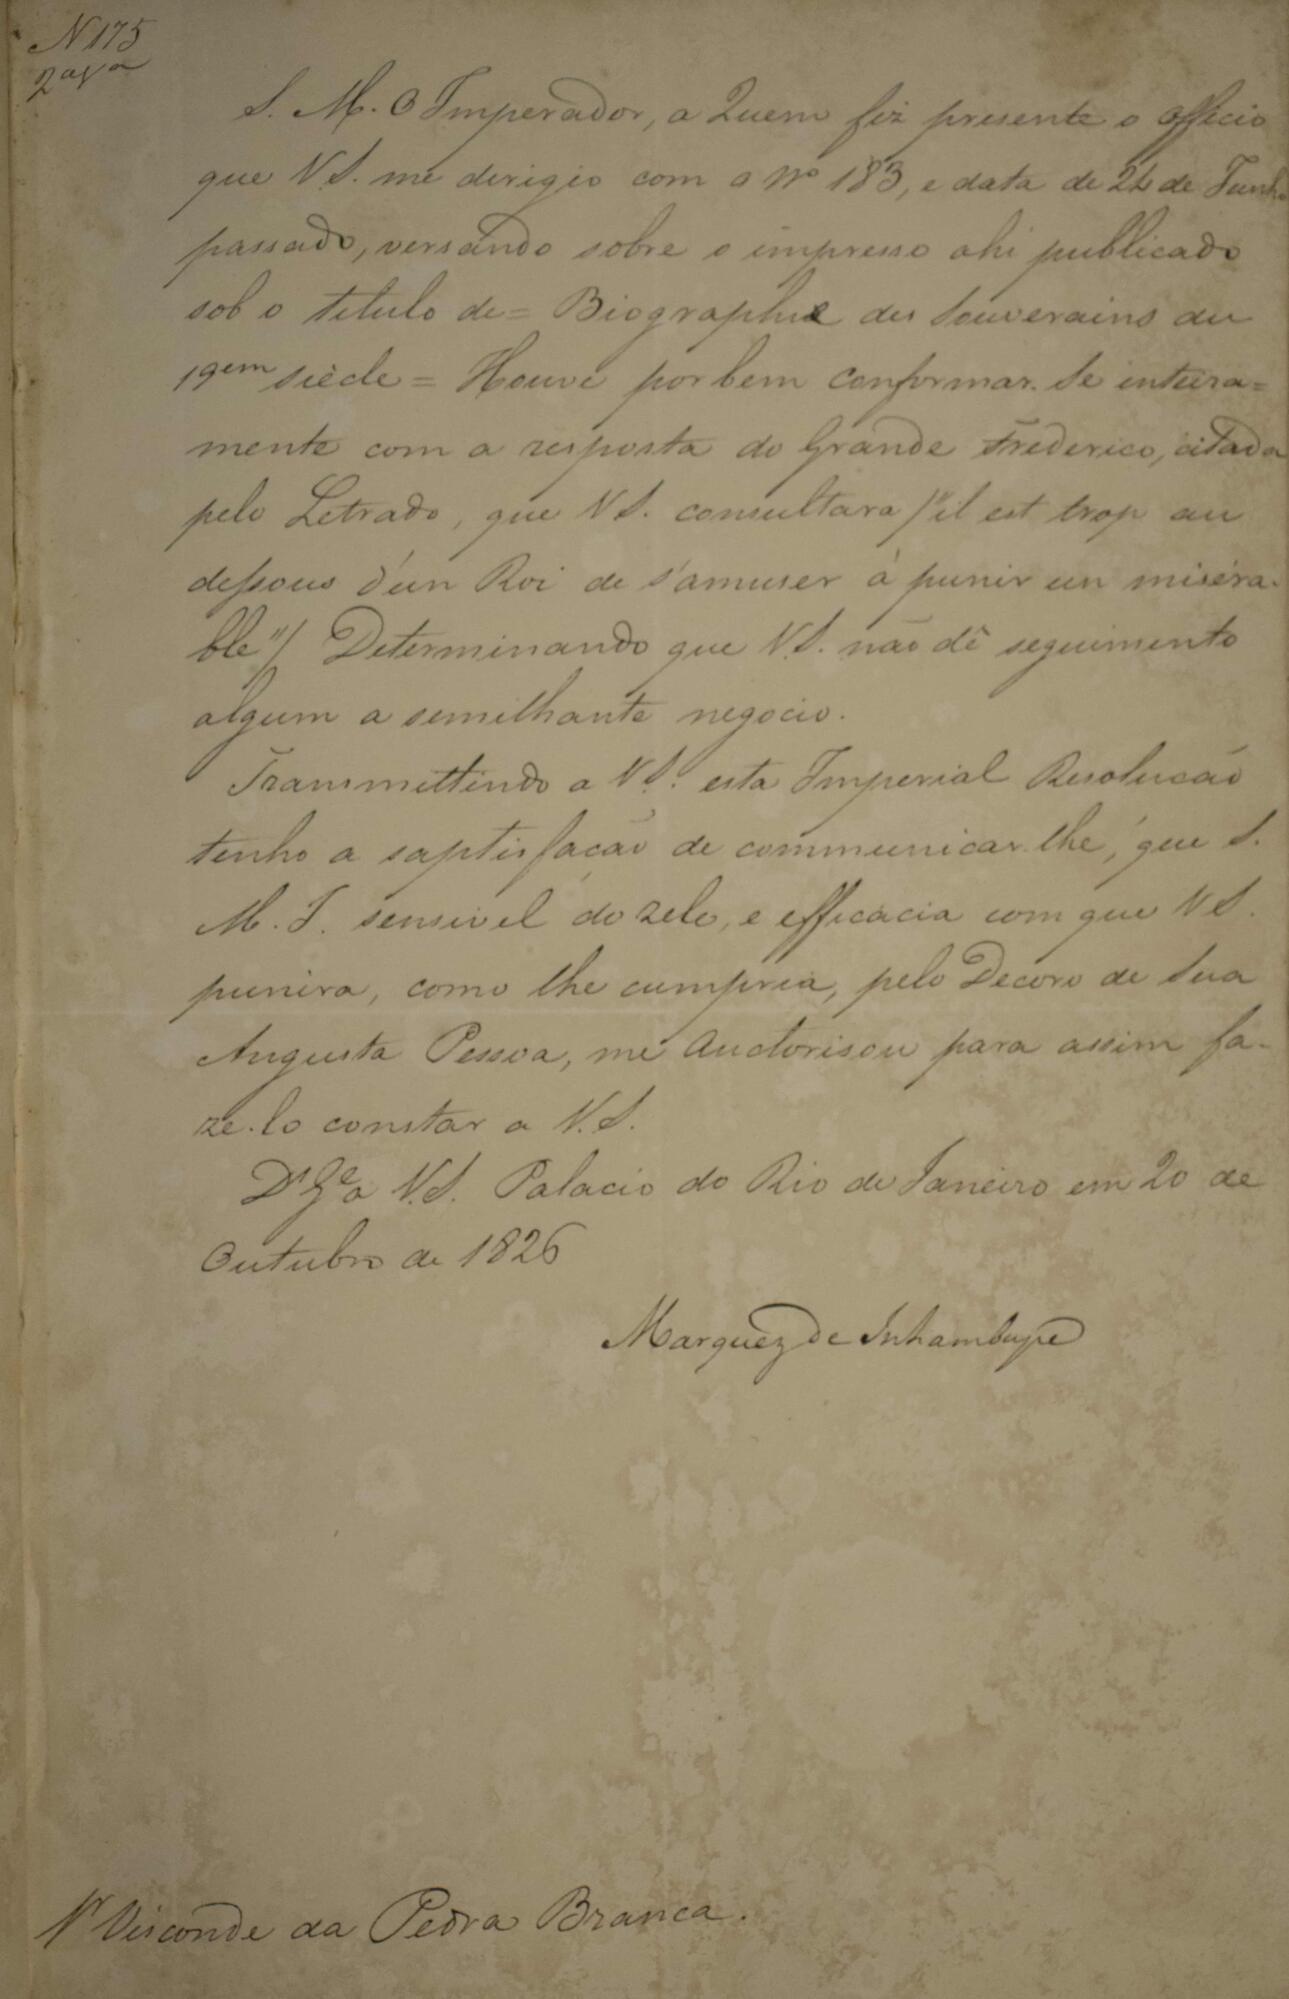 N 175
2ª Vª
S. M. O Imperador, a Quem fiz presente o officio
que V.S. me dirigio com o Nº 183, e data de 24 de Junho
passado, versando sobre o impresso ahi publicado
sob o titulo de = Biographie des Souverains du
19em siècle = Houve por bem conformar-Se inteira=
mente com a resposta do Grande Frederico, citada
pelo Letrado, que V S. consultara /"il est trop au
dessous d'un Roi de s'amuser à punir un miséra-
ble"/ Determinando que V.S. não dê seguimento
algum a semilhante negocio.
Transmittindo a V.S. esta Imperial Resolução
tenho a saptisfação de communicar-lhe, que S.
M. I. sensivel do zelo, e efficacia com que V S.
punira, como lhe cumpria, pelo Decoro de Sua
Augusta Pessoa, me Auctorisou para assim fa-
ze-lo constar a V.S.
Ds Ge a V.S. Palacio do Rio de Janeiro em 20 de
Outubro de 1826
Marquez de Inhambupe
Sr Visconde da Pedra Branca.